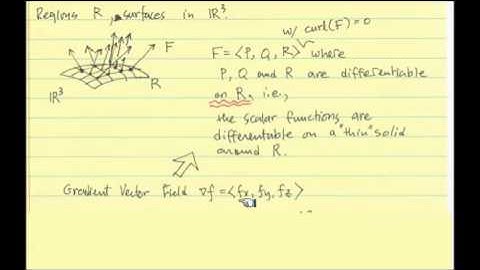 Regions R, surfaces in IR³.
w/ curl(F)=0
F = <P, Q, R> where
P, Q and R are differentiable
on R, i.e.,
the scalar functions are
differentable on a "thin" solid
around R.
F
R
IR³
Gradient Vector Field ∇f = <fx, fy, fz>